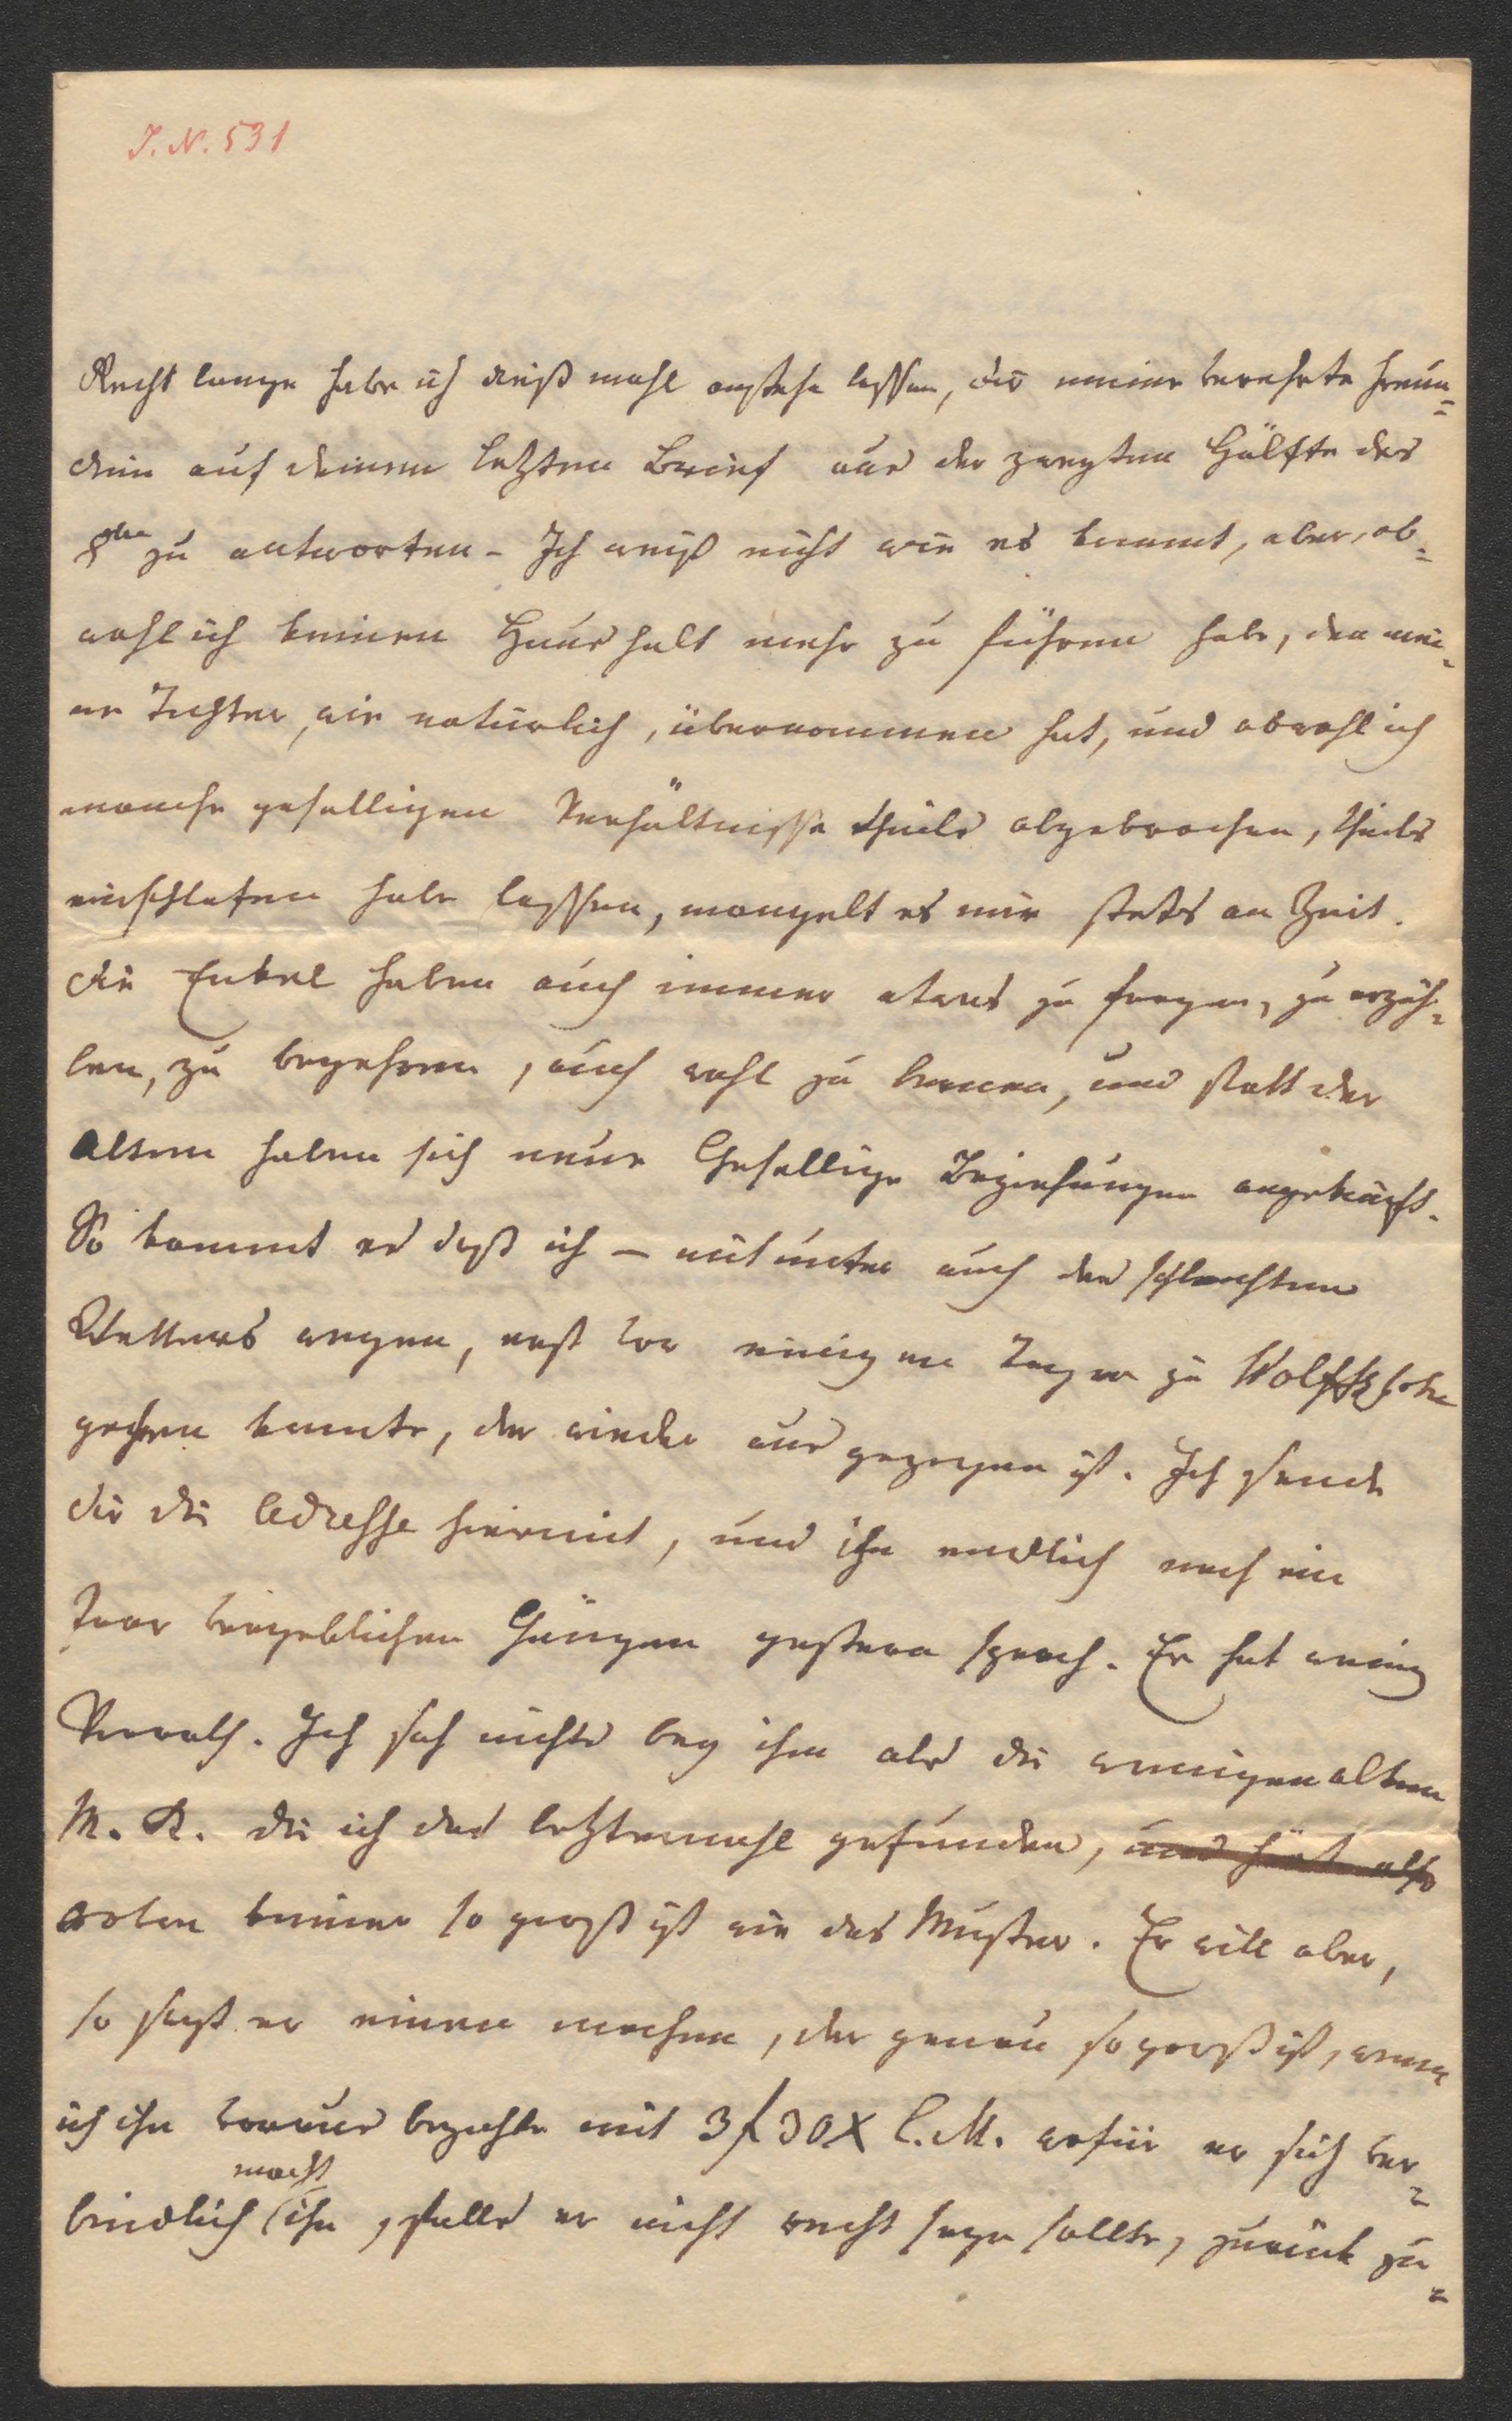 J. N. 531
Recht lange habe ich dieß mahl anstehn lassen, dir meine verehrte Freun=
din auf deinen letzten Brief aus der zweyten Hälfte des
8ber zu antworten - Ich weiß nicht wie es kommt, aber, ob=
wohl ich keinen Haushalt mehr zu führen habe, den mei=
ne Tochter, wie natürlich, übernommen hat, und obwohl ich
manche geselligen Verhältnisse theils abgebrochen, theils
einschlafen habe lassen, mangelt es mir stets an Zeit.
Die Enkel haben auch immer etwas zu fragen, zu erzäh=
len, zu begehren, auch wohl zu lernen, und statt der
ältern haben sich neue Gesellige Beziehungen angeknüpft.
So kommt es daß ich - mitunter auch des schlechten
Wetters wegen, erst vor einigen Tagen zu
gehen konnte, der wieder aus gezogen ist. Ich sende
dir die Adresse hiermit, und ihn endlich nach ein
Paar vergeblichen Gängen gestern sprach. Er hat wenig
Vorrath. Ich sah nichts bey ihm als die wenigen alten
M. K. die ich das letztemahl gefunden, und hört also
wovon keiner so groß ist wie das Muster. Er will aber,
so sagt er einen machen, der genau so groß ist, wenn
ich ihn voraus bezahle mit 3 f 30 X C. M. wofür er sich ver=
bindlich macht ihn, falls er nicht recht seyn sollte, zurück zu=